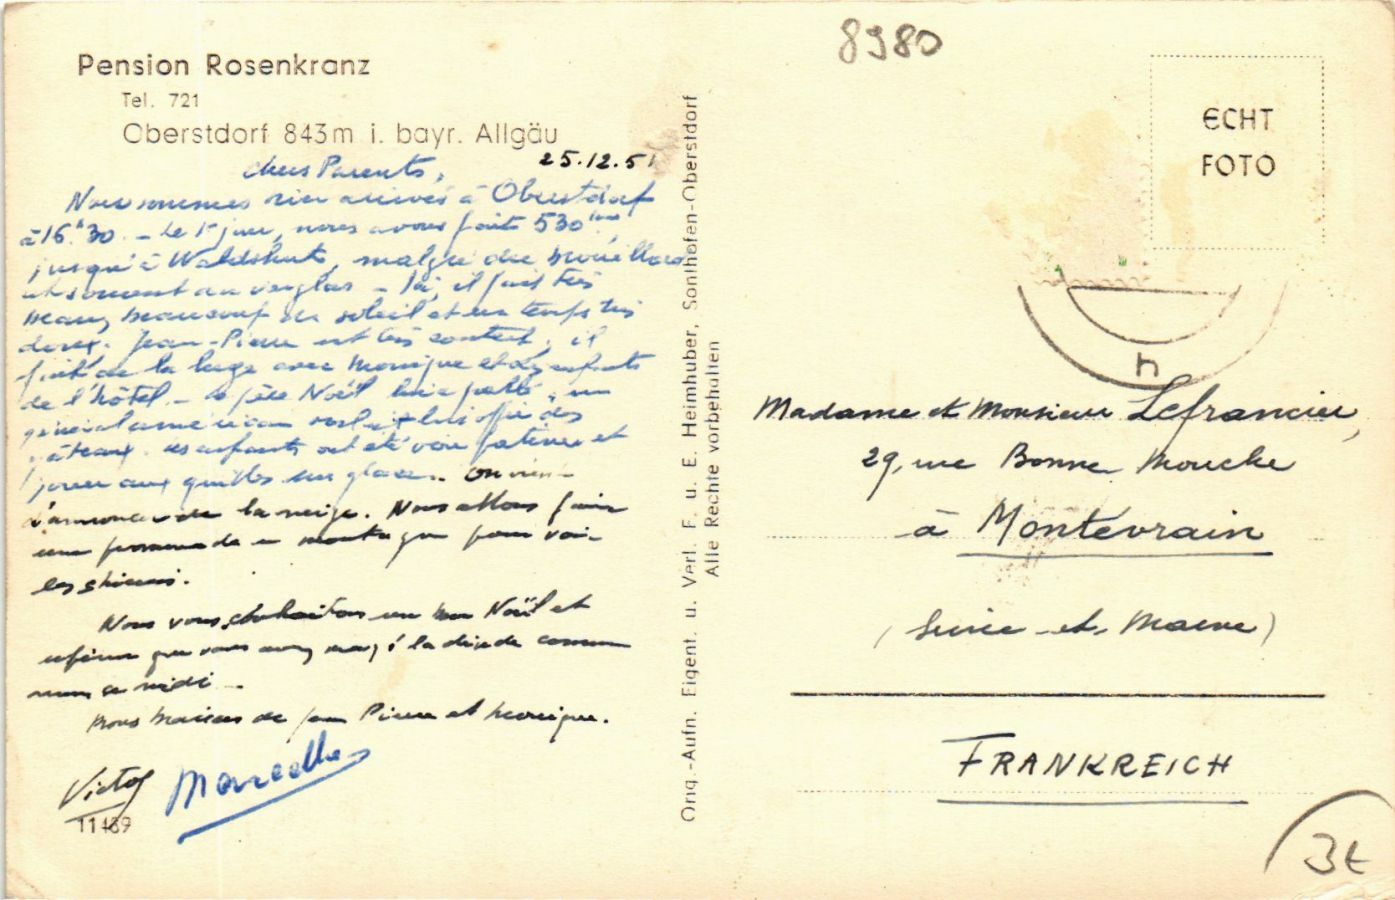 Pension Rosenkranz
Tel. 721
Oberstdorf 843m i. bayr. Allgäu
25.12.51
chers Parents,
Nous sommes arrivés à Oberstdorf
à 16h30. - le 1er jour, nous avons fait 530 kms
jusqu'à Waldshut, malgré du brouillard
et souvent du verglas - Ici, il fait très
beau, beaucoup de soleil et un temps très
doux. Jean-Pierre est très content, il
fait de la luge avec Monique et les enfants
de l'hôtel. - le père Noël lui a parlé, un
général américain lui offre des
gâteaux. les enfants ont été voir patiner et
jouer aux quilles sur glace. On vient
d'annoncer de la neige. Nous allons faire
une promenade en montagne pour voir
les skieurs.
Nous vous souhaitons un bon Noël et
espérons que vous avez mangé la dinde comme
nous ce midi -
Bons baisers de Jean Pierre et Monique.
Victor Marcelle
11489
Orig.-Aufn. Eigent. u. Verl. F. u. E. Heimhuber, Sonthofen-Oberstdorf
Alle Rechte vorbehalten
8980
ECHT
FOTO
h
Madame et Monsieur Lefrancier,
29, rue Bonne Mouche
à Montévrain
(Seine et Marne)
FRANKREICH
3€